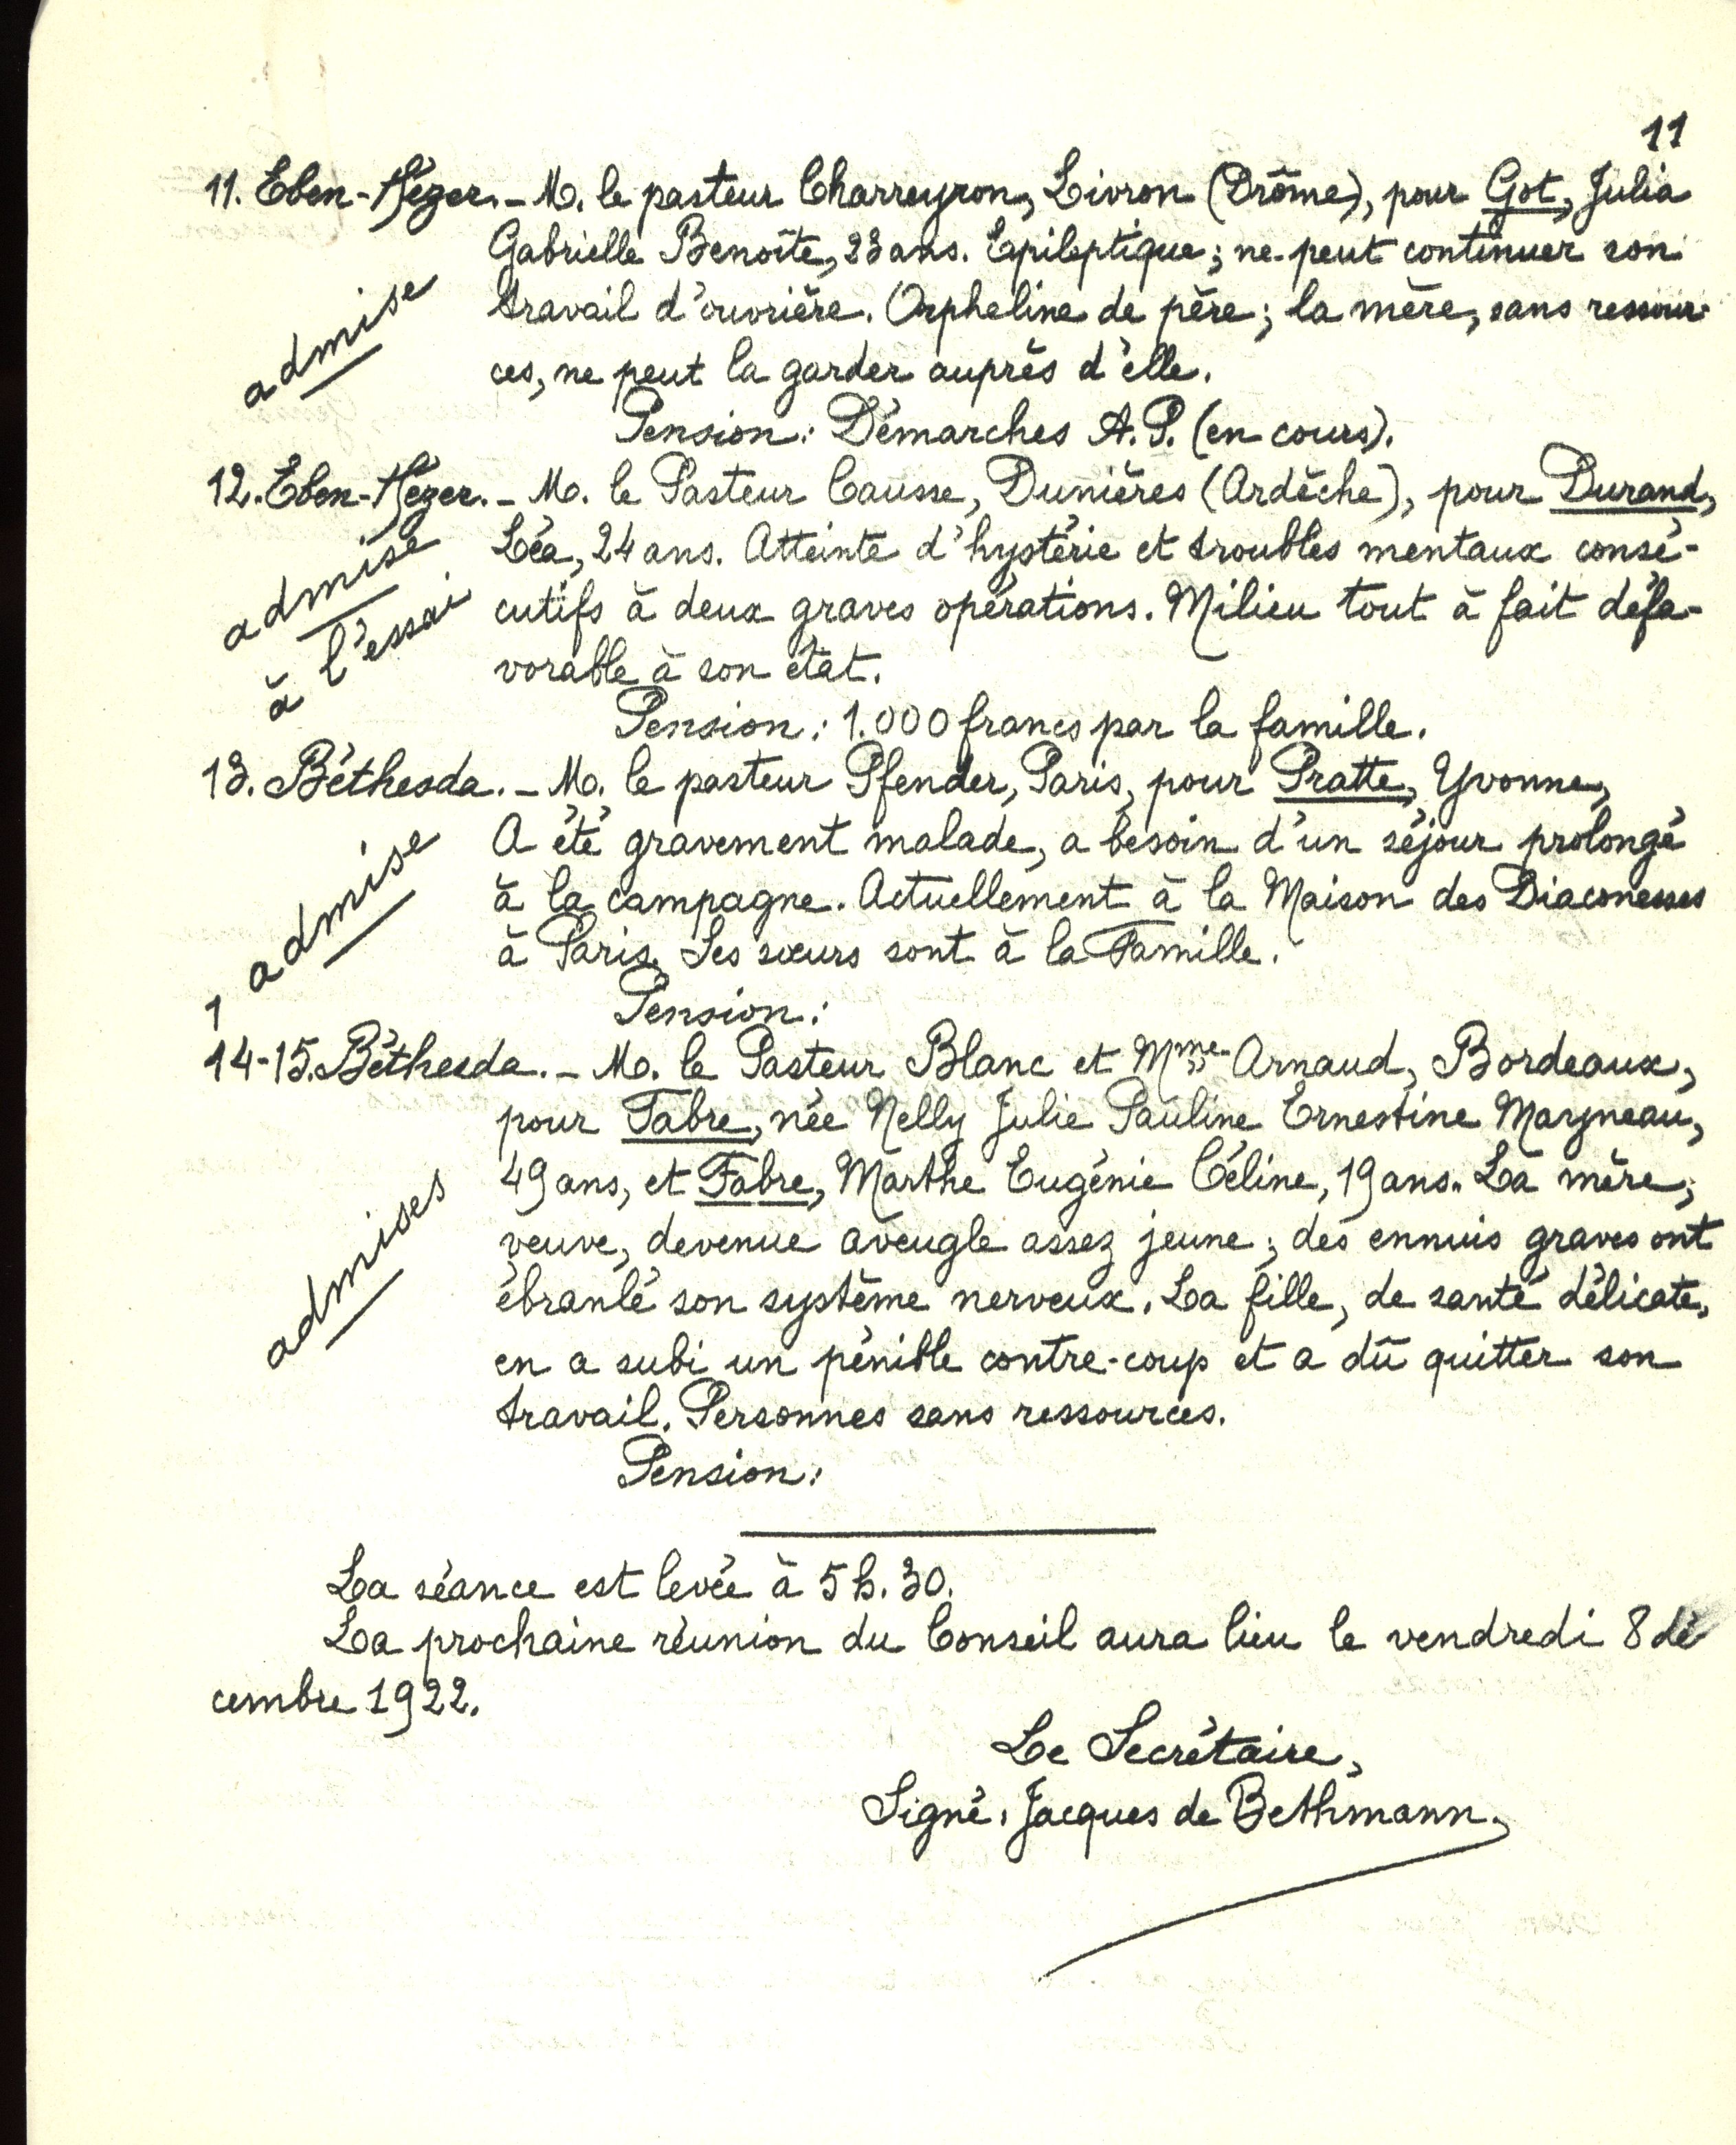 11
11. Eben-Hézer. - M. le pasteur Charreyron, Livron (Drôme), pour Got, Julia
Gabrielle Benoîte, 23 ans. Epileptique; ne peut continuer son
travail d'ouvrière. Orpheline de père; la mère, sans ressour-
ces, ne peut la garder auprès d'elle.
admise
Pension: Démarches A.P. (en cours).
12. Eben-Hézer. - M. le Pasteur Causse, Dunières (Ardèche), pour Durand,
Léa, 24 ans. Atteinte d'hystérie et troubles mentaux consé-
cutifs à deux graves opérations. Milieu tout à fait défa-
vorable à son état.
admise
à l'essai
Pension: 1.000 francs par la famille.
13. Béthesda. - M. le pasteur Pfender, Paris, pour Pratte, Yvonne,
A été gravement malade, a besoin d'un séjour prolongé
à la campagne. Actuellement à la Maison des Diaconesses
à Paris. Ses sœurs sont à la Famille.
1 admise
Pension:
14-15. Béthesda. - M. le Pasteur Blanc et Mme Arnaud, Bordeaux,
pour Fabre, née Nelly Julie Pauline Ernestine Mayneau,
49 ans, et Fabre, Marthe Eugénie Céline, 19 ans. La mère,
veuve, devenue aveugle assez jeune; des ennuis graves ont
ébranlé son système nerveux. La fille, de santé délicate,
en a subi un pénible contre-coup et a dû quitter son
travail. Personnes sans ressources.
admises
Pension:
La séance est levée à 5 h. 30.
La prochaine réunion du Conseil aura lieu le vendredi 8 dé
cembre 1922.
Le Secrétaire,
Signé: Jacques de Bethmann.